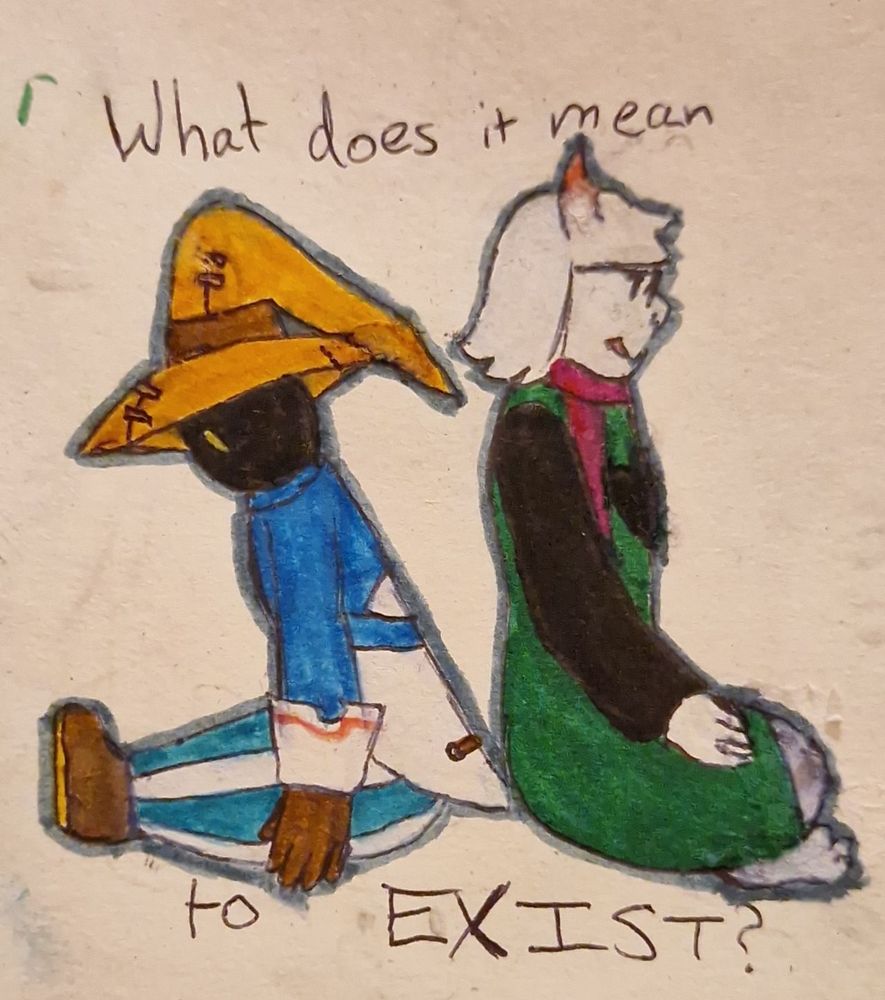 What does it mean
to EXIST?